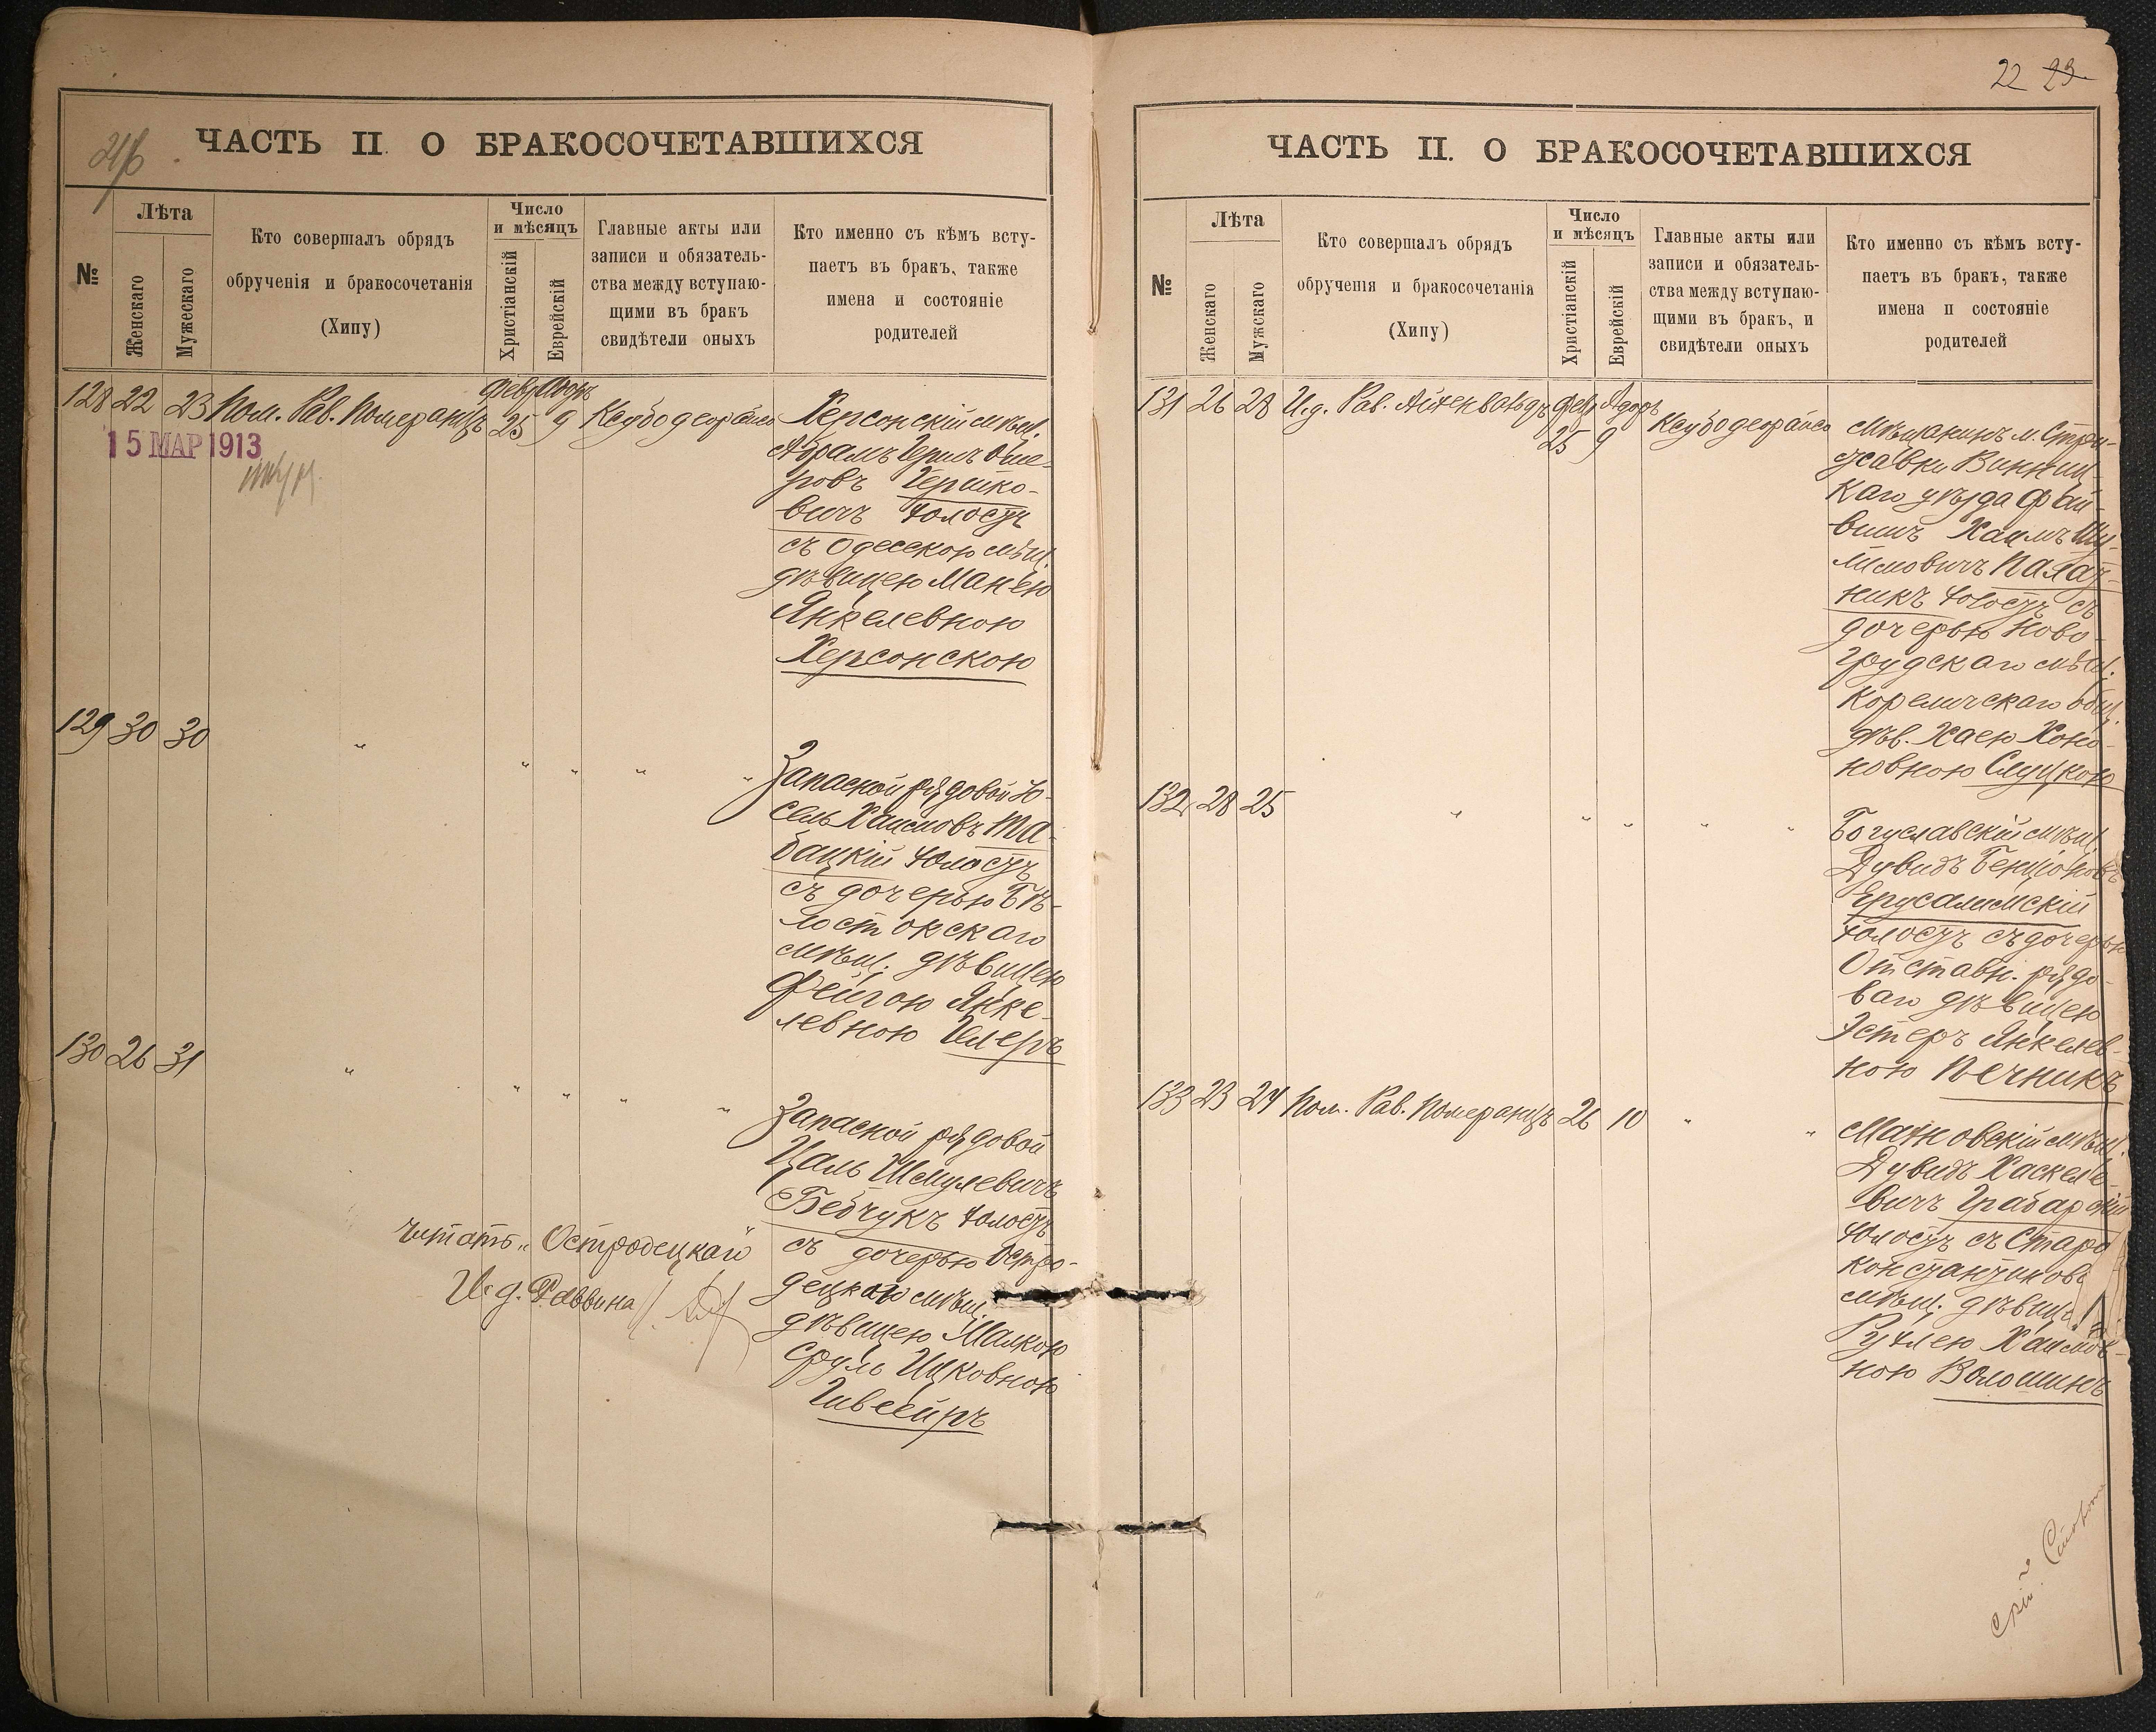 ЧАСТЬ II. О БРАКОСОЧЕТАВШИХСЯ
№
Лѣта
Женскаго
Мужескаго
Кто совершалъ обрядъ
обрученія и бракосочетанія
(Хипу)
Число
и мѣсяцъ
Христіанскій
Еврейскій
Главные акты или
записи и обязатель-
ства между вступаю-
щими въ бракъ
свидѣтели оныхъ
Кто именно съ кѣмъ всту-
паетъ въ бракъ, также
имена и состояніе
родителей
128 22 23 Пом. Рав. Померанцъ
Февр. Адоръ
25 9
15 МАР 1913
Херсонскій мѣщ.
Абрамъ Герш Оше-
ровъ Гершко-
вичъ холостъ
съ Одесскою мѣщ.
дѣвицею Манею
Янкелевною
Херсонскою
129 30 30 " " " " "
Запасной рядовой Іо-
сель Хаимовъ Та-
бацкій холостъ
съ дочерью Бѣ-
лостокскаго
мѣщ. дѣвицею
Фейгою Янке-
левною Гелеръ
130 26 31 " " " " "
Запасной рядовой
Цаль Шмулевичъ
Бебчукъ холостъ
съ дочерью Остро-
децкаго мѣщ.
дѣвицею Малкою
Сруль Ицковною
Гивсейръ
Читать "Остродецкаго"
И. д. Раввина
22 23
ЧАСТЬ II. О БРАКОСОЧЕТАВШИХСЯ
№
Лѣта
Женскаго
Мужскаго
Кто совершалъ обрядъ
обрученія и бракосочетанія
(Хипу)
Число
и мѣсяцъ
Христіанскій
Еврейскій
Главные акты или
записи и обязатель-
ства между вступаю-
щими въ бракъ, и
свидѣтели оныхъ
Кто именно съ кѣмъ всту-
паетъ въ бракъ, также
имена и состояніе
родителей
131 26 28 И. д. Рав. Айхенвальдъ
Февр. Адоръ
25 9
Мѣщанинъ м. Стри-
жавки Винниц-
каго уѣзда Фай-
вишъ Хаимъ Шу-
лимовичъ Палат-
никъ холостъ съ
дочерью Ново-
грудскаго мѣщ.
Кореличскаго общ.
дѣв. Хаею Хоно-
новною Слуцкою
132 28 25 " " " " "
Богуславскій мѣщ.
Дувидъ Бенціоновъ
Ерусалимскій
холостъ съ дочерью
Отставн. рядо-
ваго дѣвицею
Эстеръ Янкелев-
ною Печникъ
133 23 24 Пом. Рав. Померанцъ 26 10 " "
Махновскій мѣщ.
Дувидъ Хаскеле-
вичъ Грабарскій
холостъ съ Старо
константинов.
мѣщ. дѣвицею
Рухлею Хаимов-
ною Волошинъ